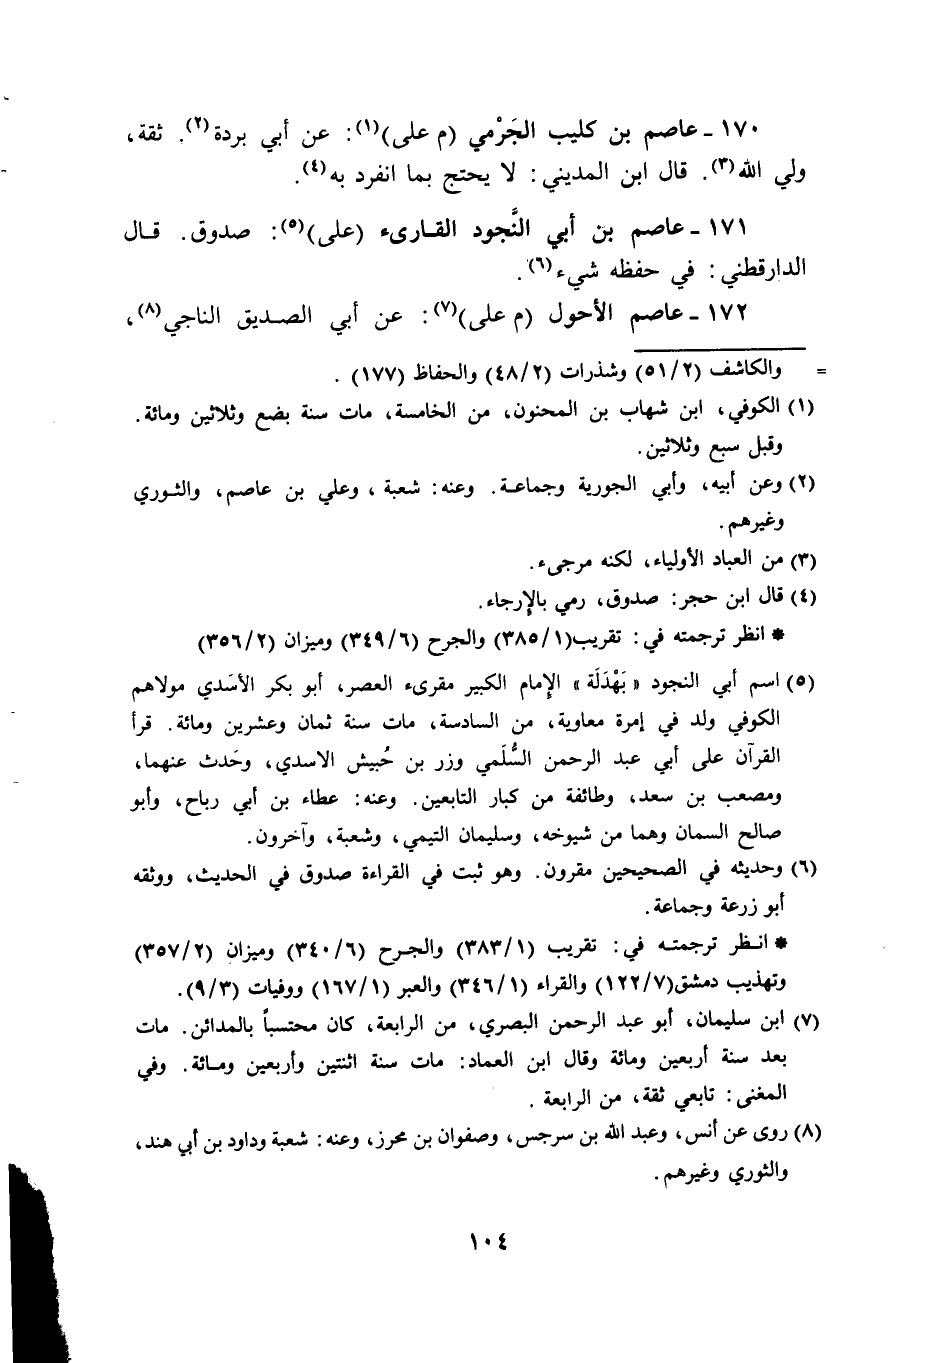 ١٧٠ - عاصم بن كليب الجَرْمي (م على)(١): عن أبي بردة(٢). ثقة،
ولي الله(٣). قال ابن المديني: لا يحتج بما انفرد به(٤).
١٧١ - عاصم بن أبي النَّجود القارىء (على)(٥): صدوق. قال
الدارقطني: في حفظه شيء(٦).
١٧٢ - عاصم الأحول (م على)(٧): عن أبي الصديق الناجي(٨)،
= والكاشف (٥١/٢) وشذرات (٤٨/٢) والحفاظ (١٧٧).
(١) الكوفي، ابن شهاب بن المحنون، من الخامسة، مات سنة بضع وثلاثين ومائة.
وقبل سبع وثلاثين.
(٢) وعن أبيه، وأبي الجورية وجماعة. وعنه: شعبة، وعلي بن عاصم، والثوري
وغيرهم.
(٣) من العباد الأولياء، لكنه مرجىء.
(٤) قال ابن حجر: صدوق، رمي بالإرجاء.
* انظر ترجمته في: تقريب(٣٨٥/١) والجرح (٣٤٩/٦) وميزان (٣٥٦/٢)
(٥) اسم أبي النجود «بَهْدَلَة» الإمام الكبير مقرىء العصر، أبو بكر الأسَدي مولاهم
الكوفي ولد في إمرة معاوية، من السادسة، مات سنة ثمان وعشرين ومائة. قرأ
القرآن على أبي عبد الرحمن السُّلَمي وزر بن حُبيش الاسدي، وحَدث عنهما،
ومصعب بن سعد، وطائفة من كبار التابعين. وعنه: عطاء بن أبي رباح، وأبو
صالح السمان وهما من شيوخه، وسليمان التيمي، وشعبة، وآخرون.
(٦) وحديثه في الصحيحين مقرون. وهو ثبت في القراءة صدوق في الحديث، ووثقه
أبو زرعة وجماعة.
* انظر ترجمته في: تقريب (٣٨٣/١) والجرح (٣٤٠/٦) وميزان (٣٥٧/٢)
وتهذيب دمشق(١٢٢/٧) والقراء (٣٤٦/١) والعبر (١٦٧/١) ووفيات (٩/٣).
(٧) ابن سليمان، أبو عبد الرحمن البصري، من الرابعة، كان محتسباً بالمدائن. مات
بعد سنة أربعين ومائة وقال ابن العماد: مات سنة اثنتين وأربعين ومائة. وفي
المغنى: تابعي ثقة، من الرابعة.
(٨) روى عن أنس، وعبد الله بن سرجس، وصفوان بن محرز، وعنه: شعبة وداود بن أبي هند،
والثوري وغيرهم.
١٠٤